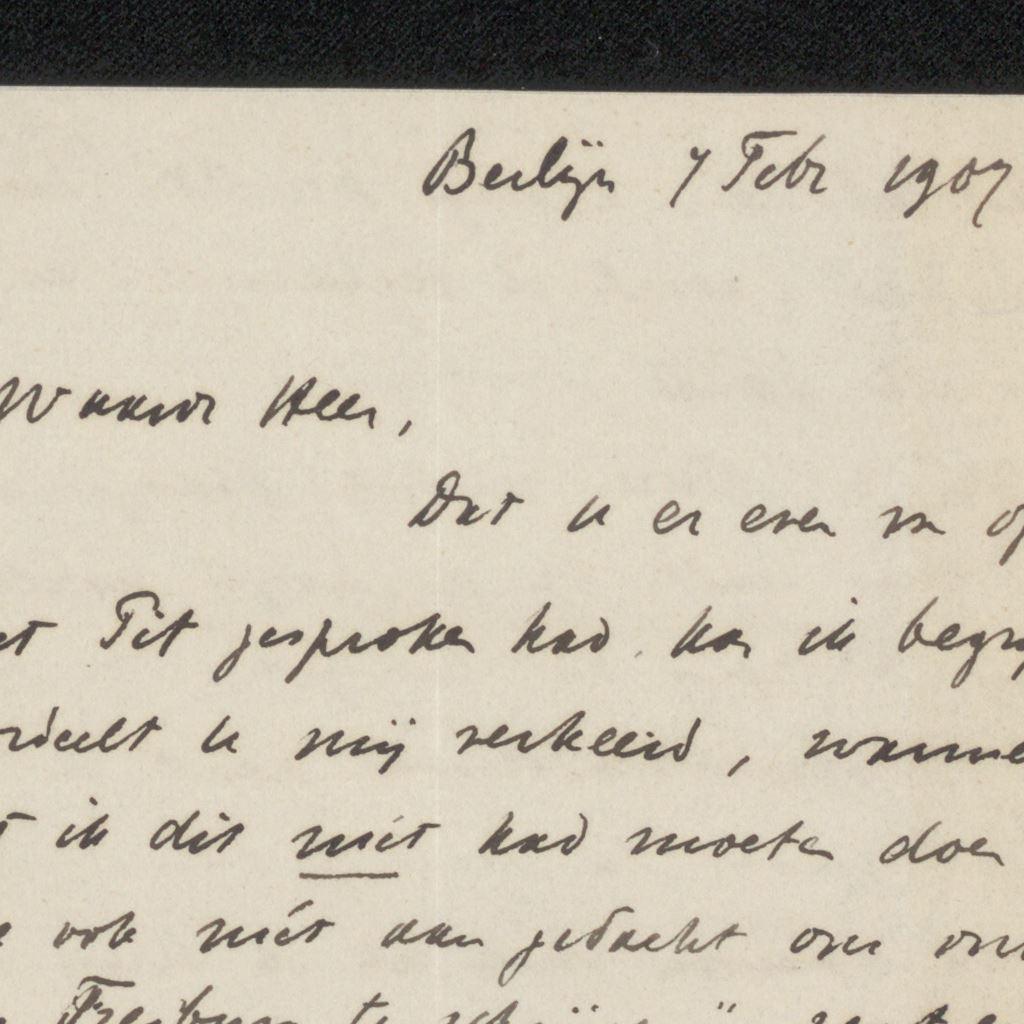 Berlijn 7 Febr 1907
Waarde Heer,
Dat u er even van op
Pit gesproken had, kon ik
u mij verkeerd, wannee
ik dit niet had moeten doen
ook niet aan gedacht om
Freiburg te